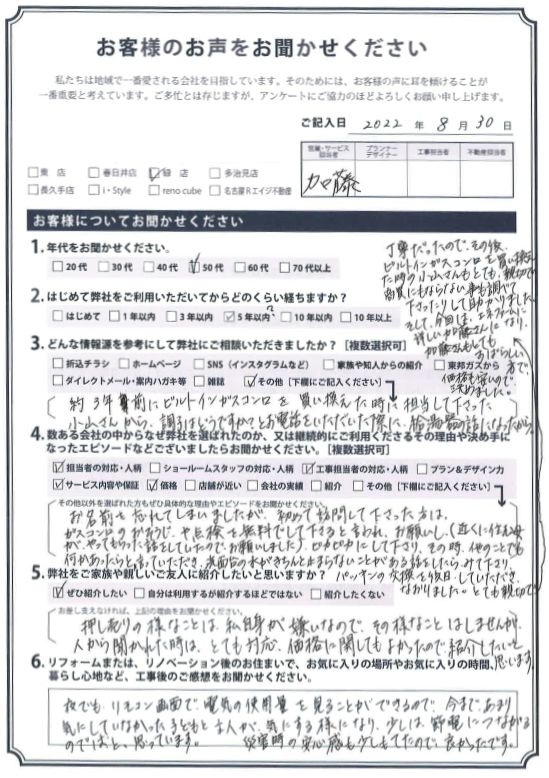 お客様のお声をお聞かせください
私たちは地域で一番愛される会社を目指しています。そのためには、お客様の声に耳を傾けることが
一番重要と考えています。ご多忙とは存じますが、アンケートにご協力のほどよろしくお願い申し上げます。
ご記入日 2022 年 8 月 30 日
□東 店 □春日井店 ☑緑 店 □多治見店
□長久手店 □i・Style □reno cube □名古屋Rエイジ不動産
営業・サービス担当者 プランナーデザイナー 工事担当者 不動産担当者
加藤
お客様についてお聞かせください
1.年代をお聞かせください。
□20代 □30代 □40代 ☑50代 □60代 □70代以上
2.はじめて弊社をご利用いただいてからどのくらい経ちますか？
□はじめて □1年以内 □3年以内 ☑5年以内? □10年以内 □10年以上
3.どんな情報源を参考にして弊社にご相談いただきましたか？［複数選択可］
□折込チラシ □ホームページ □SNS（インスタグラムなど） □家族や知人からの紹介 □東邦ガスから
□ダイレクトメール・案内ハガキ等 □雑誌 ☑その他［下欄にご記入ください］
約3年前にビルトインガスコンロを買い換えた時に担当して下さった
小山さんから、調子はどうですか？とお電話をいただいた際に、給湯器の話になったから。
4.数ある会社の中からなぜ弊社を選ばれたのか、又は継続的にご利用くださるその理由や決め手に
なったエピソードなどございましたらお聞かせください。［複数選択可］
☑担当者の対応・人柄 □ショールームスタッフの対応・人柄 ☑工事担当者の対応・人柄 □プラン＆デザイン力
☑サービス内容や保証 ☑価格 □店舗が近い □会社の実績 □紹介 □その他［下欄にご記入ください］
その他以外を選ばれた方もぜひ具体的な理由やエピソードをお聞かせください。
お名前を忘れてしまいましたが、初めて訪問して下さった方は、
ガスコンロのおそうじ、や点検を無料でして下さると言われ、お願いし、（近くに住む母
がやってもらった話をしていたのでお願いしました）ピカピカにして下さり、その時、他のことでも
何かあったらと言っていただき、洗面台の水がきちんと止まらないことがある話をしたらみて下さり、
パッキンの交換を後日していただき、
なおりました。とても親切で
丁寧だったので、その後、
ビルトインガスコンロを買い換え
た時の小山さんもとても、親切で
下さったりして助かりました。
そして、今回は、エネファームに
詳しい加藤さんになり、
加藤さんもとても
すばらしい方で、
価格も安いので
決めました。
5.弊社をご家族や親しいご友人に紹介したいと思いますか？
☑ぜひ紹介したい □自分は利用するが紹介するほどではない □紹介したくない
お差し支えなければ、上記の理由をお聞かせください。
押し売りの様なことは、私自身が嫌いなので、その様なことはしませんが、
人から聞かれた時は、とても対応、価格に関してもよかったので紹介したいと
思います。
6.リフォームまたは、リノベーション後のお住まいで、お気に入りの場所やお気に入りの時間、
暮らし心地など、工事後のご感想をお聞かせください。
夜でも、リモコン画面で、電気の使用量を見ることができるので、今まで、あまり
気にしていなかった子どもと主人が、気にする様になり、少しは、節電につながる
のではと、思っています。 災害時の安心感も少しもてたので、良かったです。